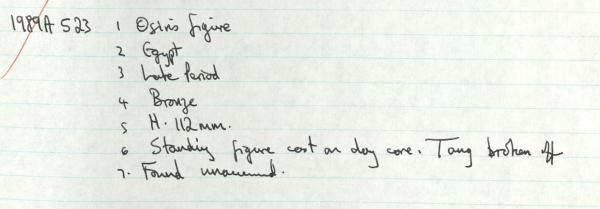 1989A 523 1 Osiris figure
2 Egypt
3 Late Period
4 Bronze
5 H. 112mm.
6 Standing figure cast on clay core. Tang broken off
7. Found